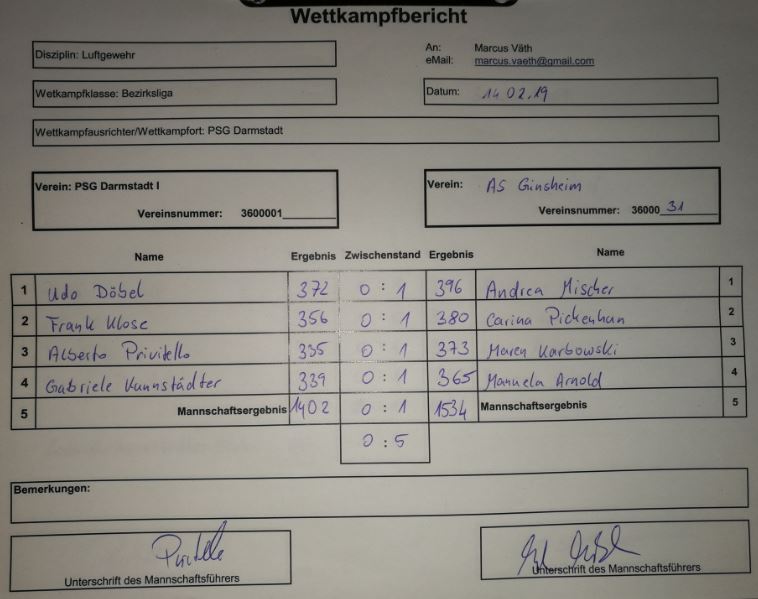 Wettkampfbericht
Disziplin: Luftgewehr
An: Marcus Väth
eMail: marcus.vaeth@gmail.com
Wetkampfklasse: Bezirksliga
Datum: 14.02.19
Wettkampfausrichter/Wettkampfort: PSG Darmstadt
Verein: PSG Darmstadt I
Vereinsnummer: 3600001
Verein: AS Ginsheim
Vereinsnummer: 36000 31
Name Ergebnis Zwischenstand Ergebnis Name
1 Udo Döbel 372 0 : 1 396 Andrea Mischer 1
2 Frank Klose 356 0 : 1 380 Carina Pickenhan 2
3 Alberto Privitello 335 0 : 1 373 Maren Karbowski 3
4 Gabriele Kunnstädter 339 0 : 1 365 Manuela Arnold 4
5 Mannschaftsergebnis 1402 0 : 1 1534 Mannschaftsergebnis 5
0 : 5
Bemerkungen:
Unterschrift des Mannschaftsführers
Unterschrift des Mannschaftsführers